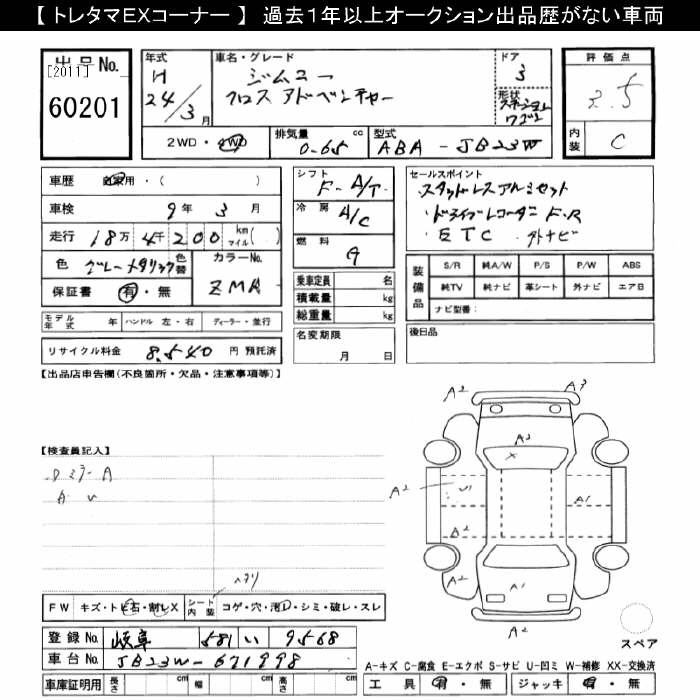 【 トレタマEXコーナー 】 過去1年以上オークション出品歴がない車両
出品No.
[2011]
60201
年式
H
24/3月
車名・グレード
ジムニー
クロスアドベンチャー
ドア
3
形状
ステーション
ワゴン
評価点
2.5
内装
C
2WD・4WD
排気量 0.65 cc
型式 ABA - JB23W
車歴 自家用・( )
車検 9年 3月
走行 18万 4千 200 km マイル( )
色 グレーメタリック 色替
カラーNo.
ZMA
保証書 有・無
モデル年式 年 ハンドル 左・右 ディーラー・並行
リサイクル料金 8,540 円 預託済
シフト
F-A/T
冷房
A/C
燃料
G
乗車定員 名
積載量 kg
総重量 kg
名変期限
月 日
セールスポイント
・スタッドレスアルミセット
・ドライブレコーダー F.R
・ETC ・外ナビ
装備品
S/R 純A/W P/S P/W ABS
純TV 純ナビ 革シート 外ナビ エアB
ナビ型番:
後日品
【出品店申告欄(不良箇所・欠品・注意事項等)】
【検査員記入】
Dミラー A
A U
ヘタリ
FW キズ・トビ石・割レX
シート内装 コゲ・穴・汚レ・シミ・破レ・スレ
登録No. 岐阜 581 い 9568
車台No. JB23W-671998
車庫証明用 長さ cm 幅 cm 高さ cm
A2
A3
A2
X
A2
U1
A1
A2
A2
A1
A1
A2
A2
スペア
A-キズ C-腐食 E-エクボ S-サビ U-凹ミ W-補修 XX-交換済
工具 有・無 ジャッキ 有・無